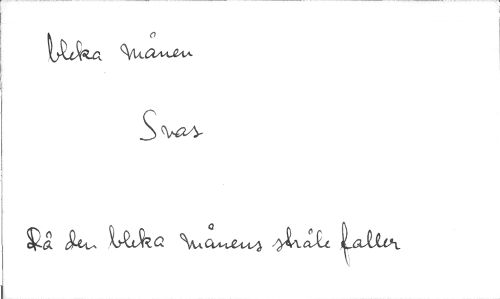 bleka månen
Svas
Då den bleka månens stråle faller